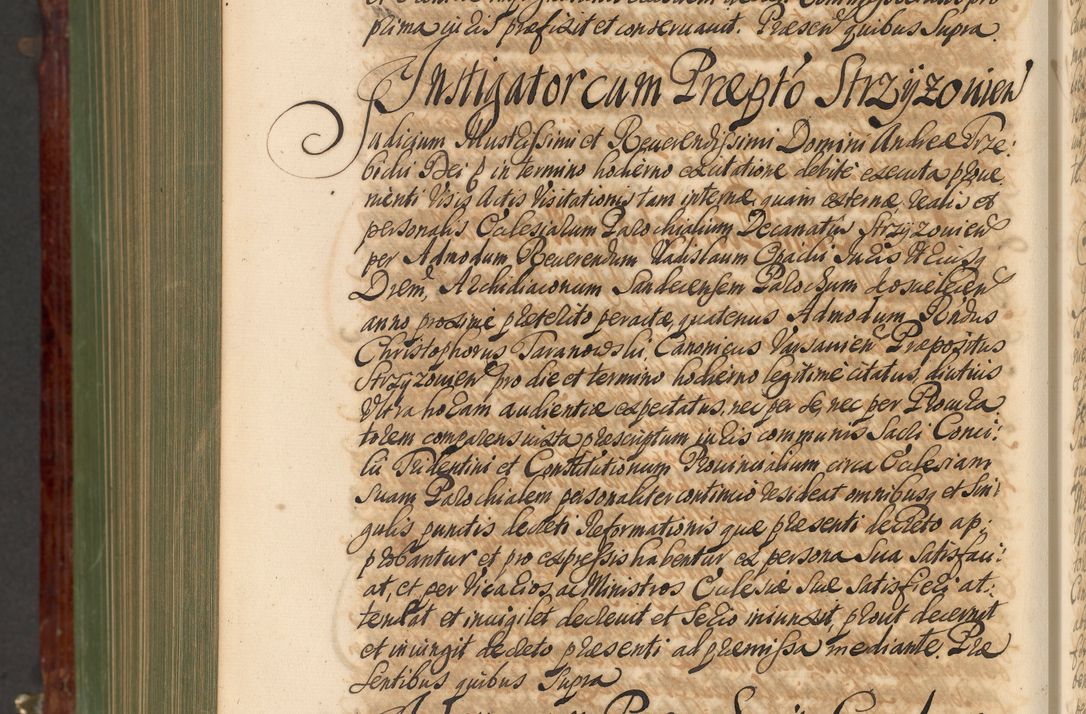 prima iuris præfixit et conseruauit. Præsen̄ quibus Supra.
Instigator cum Præpto Strzyzouien̄
Judicium Illustrissimi et Reuerendissimi Domini Andreæ Trze:
bicki Dei g̃ in termino hodierno ex citatione debite executa proue:
nienti Visis Actis Visitationis tam internæ, quam externæ, realis et
personalis Ecclesiarum Parochialium Decanatus Strzyzouien̄
per Admodum Reuerendum Vladislaum Opacki Juris Vtriusq
Drem, Archidiaconum Sandecensem Parochum
anno proxime præterito peractæ, quatenus Admodum Rndus
Christophorus Taranowski, Canonicus Varsauien̄ Præpositus
Strzyzouien̄ pro die et termino hodierno legitime citatus, diutius
Vltra horam audientiæ expectatus, nec per se, nec per Procura
torem comparens iuxta præscriptum iuris communis Sacri Conci:
lii Tridentini et Constitutionum Prouincialium circa Ecclesiam
Suam Parochialem personaliter continuo resideat omnibusq et Sin:
gulis punctis decreti Reformationis quæ præsenti decreto ap:
probantur et pro expressis habentur ex persona Sua Satisfaci:
at, et per Vicarios, ac Ministros Ecclesiæ Suæ satisfieri at:
tendat et inuigilet decreuit et Serio iniunxit, prout decernit
et iniungit decreto præsenti ad præmissa mediante. Præ
sentibus quibus Supra